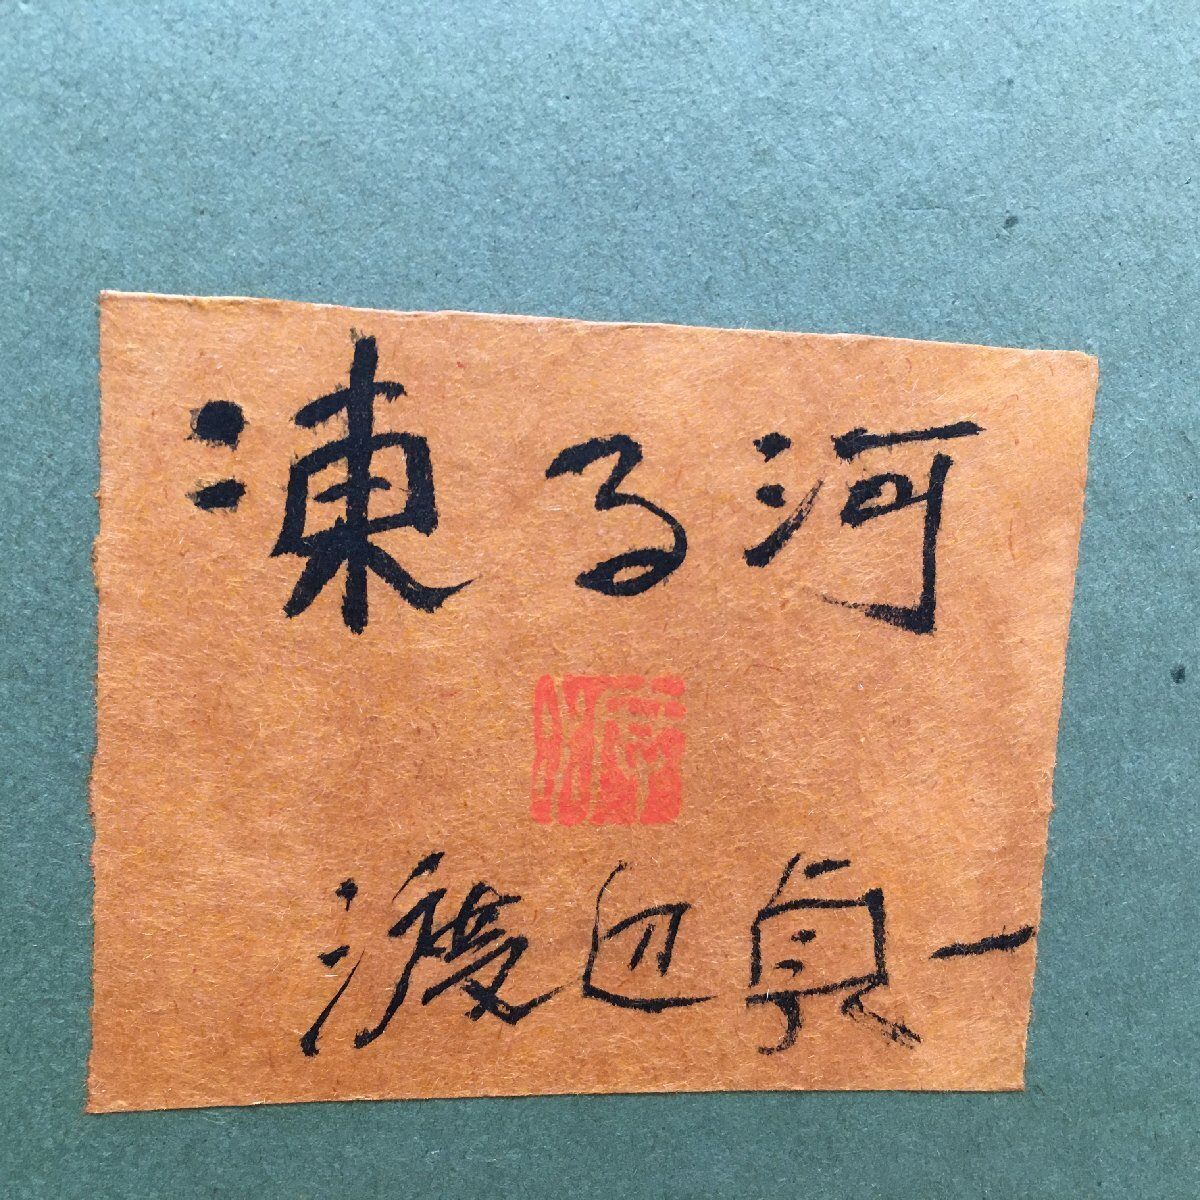 凍る河
渡辺貞一